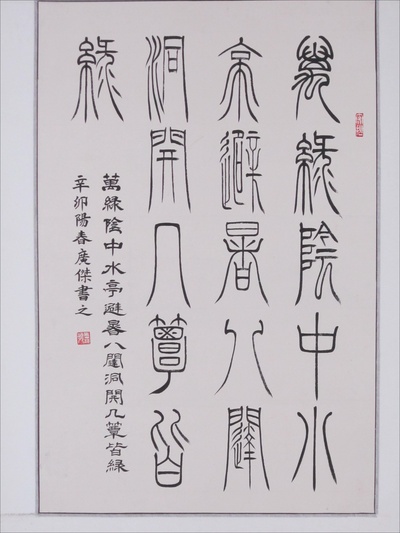 萬綠陰中水
亭避暑八闥
洞開几簟皆
綠
萬綠陰中水亭避暑八闥洞開几簟皆綠
辛卯陽春廣傑書之